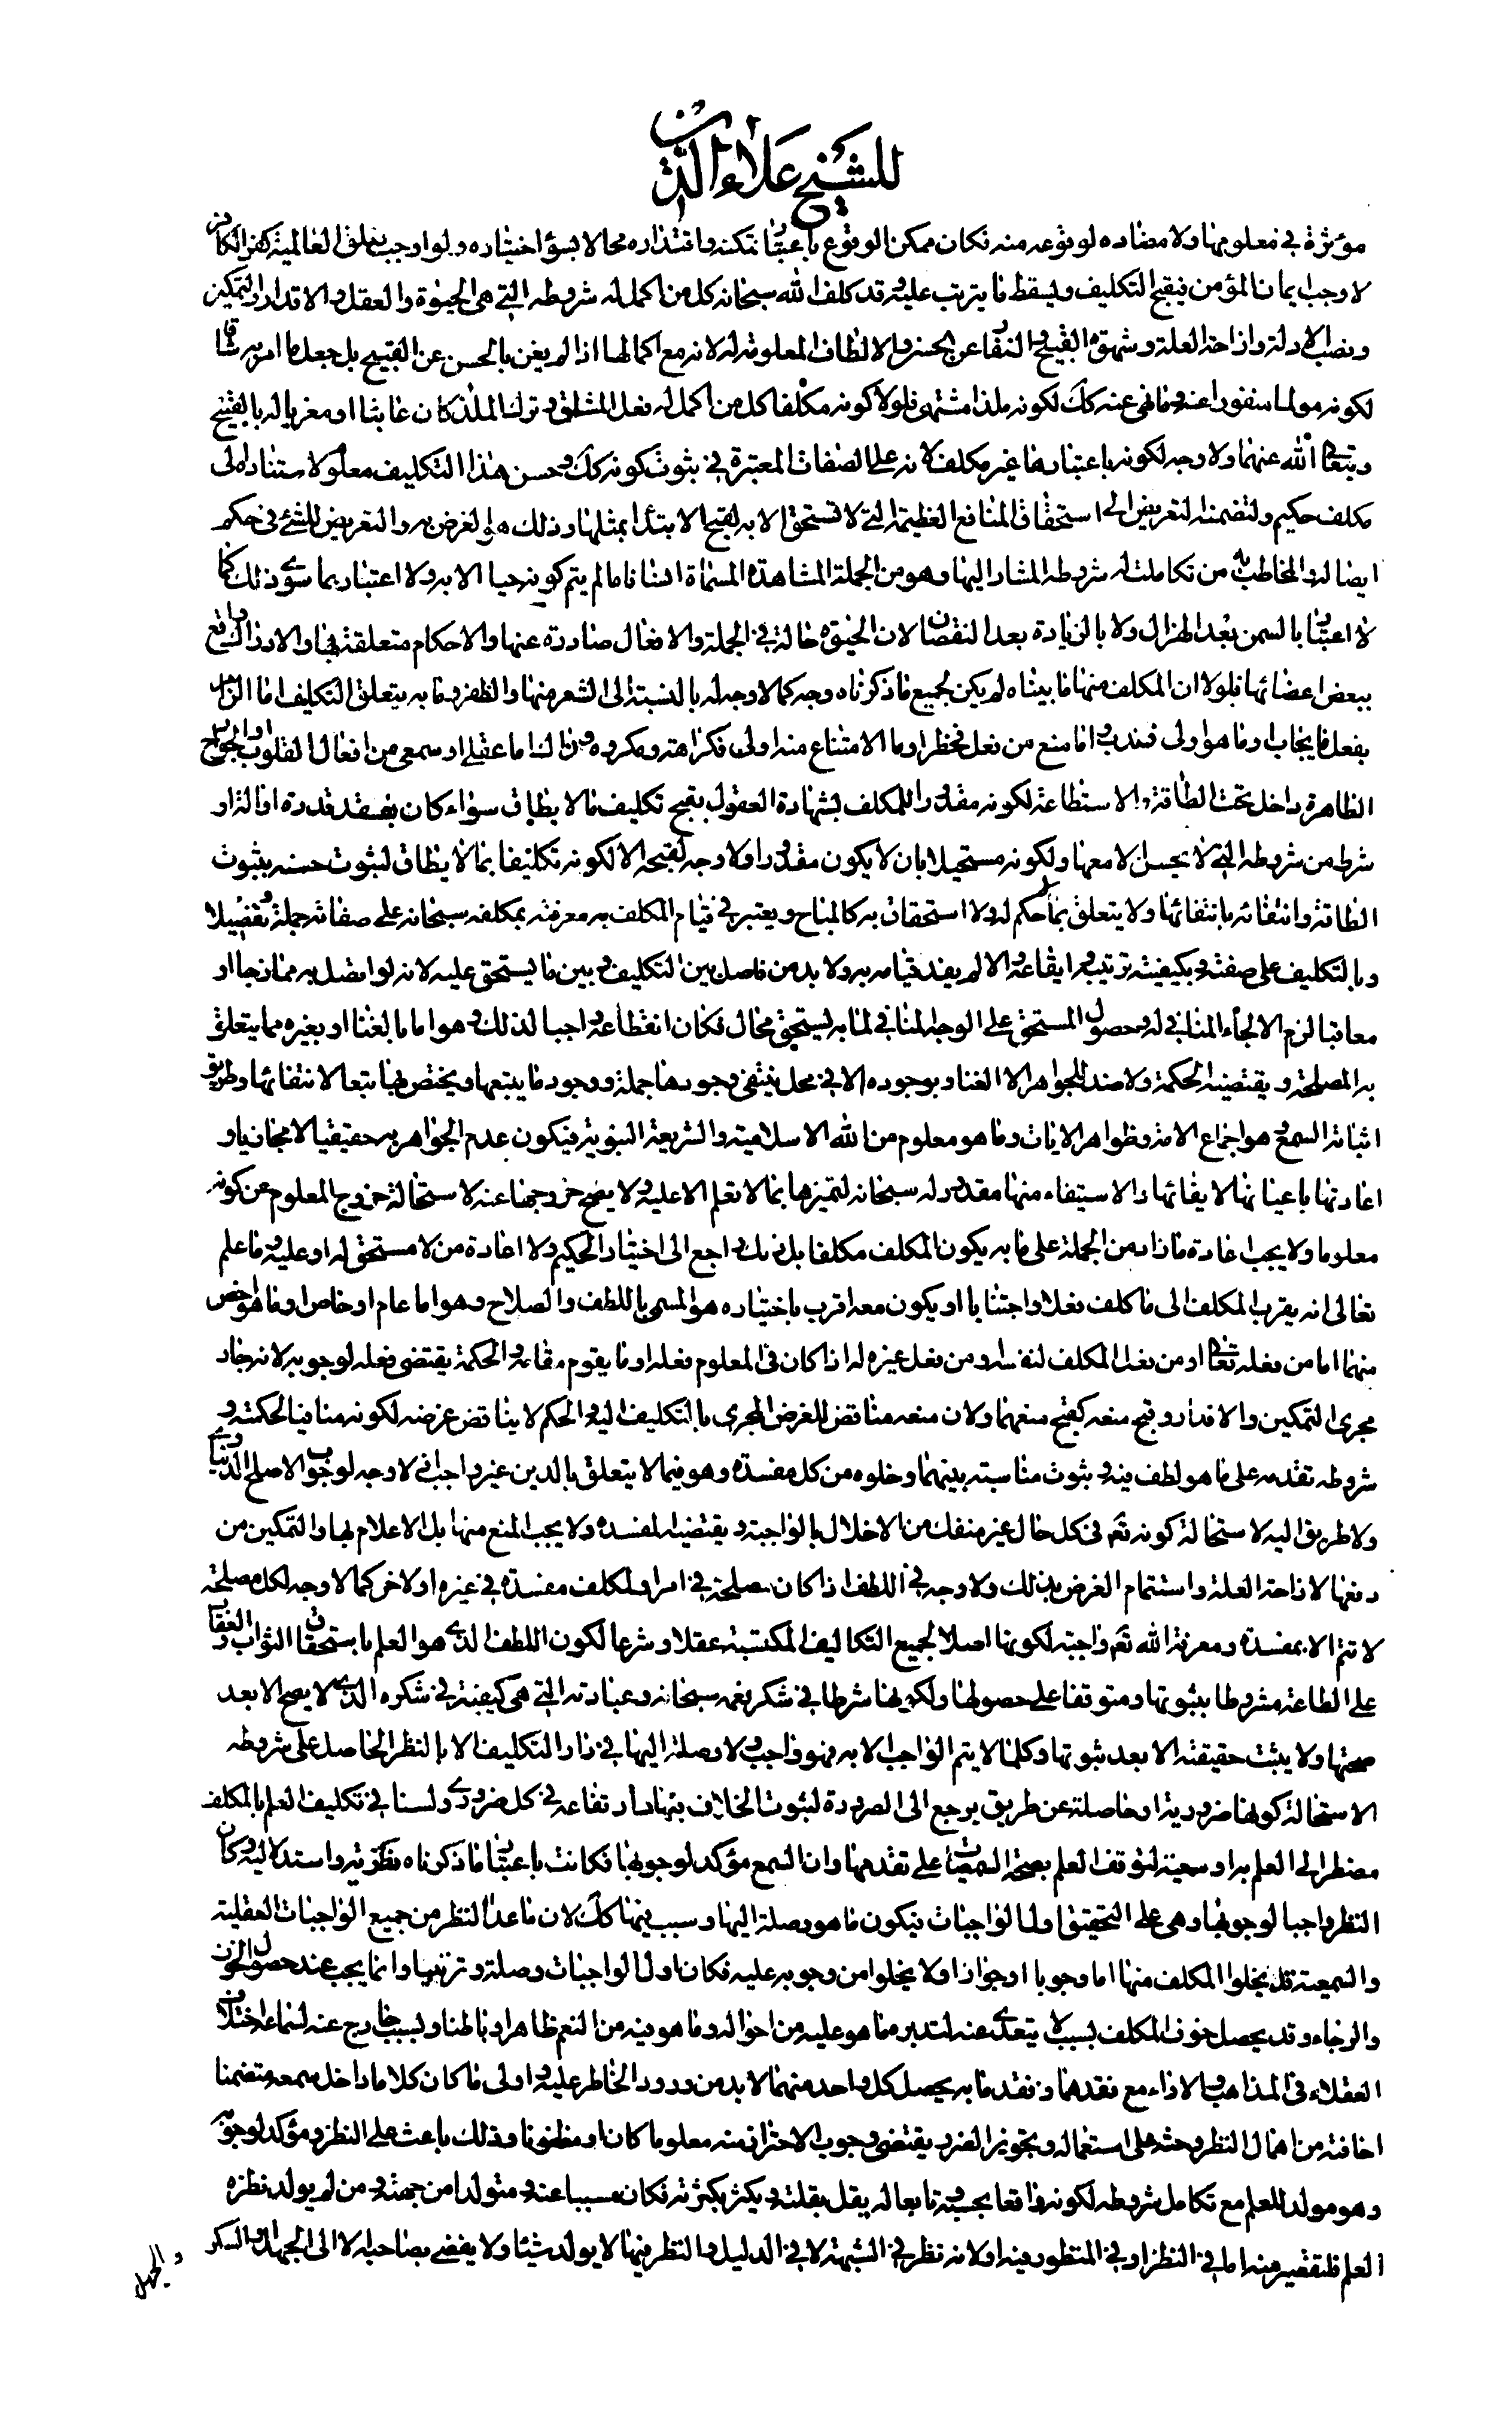 للشيخ علاء الدين
مؤثرة في معلومها ولا مضاده لوقوعه منه فكان ممكن الوقوع باعتبار تمكنه واقتداره محالا بسوء اختياره ولو اوجب تعلق العالمية كفر الكافر
لاوجب ايمان المؤمن فيقبح التكليف ويسقط ما يترتب عليه وقد كلف الله سبحانه كل من اكمل له شروطه التي هي الحيوة والعقل والاقدار والتمكين
ونصب الادلة وازاحة العلة وشهوة القبيح والنفار عن الحسن والالطاف المعلومة له لانه مع اكمالها اذا لم يغن بالحسن عن القبيح بل جعل ما امر به شاقا
لكونه مولما منفورا عنه وما نهى عنه كك لكونه ملذا مشتهى فلولا كونه مكلفا كل من اكمل له فعل المشاق وترك الملذ كان عابثا او مغريا له بالقبيح
ويتعالى الله عنهما ولا وجه لكونه باعتبارها غير مكلف لانه على الصفات المعتبرة في ثبوت كونه كك وحسن هذا التكليف معلوم لاستناده الى
مكلف حكيم ولتضمنه التعريض الى استحقاق المنافع العظيمة التي لا تستحق الا به لقبح الابتداء بمثلها وذلك هو الغرض به والتعريض للشئ في حكم
ايصاله والمخاطب به من تكاملت له شروطه المشار اليها وهو من الجملة المشاهدة المسماة انسانا ما لم يتم كونه حيا الا به ولا اعتبار بما سوى ذلك كما
لا اعتبار بالسمن بعد الهزال ولا بالزيادة بعد النقصان لان الحيوة حالة في الجملة والافعال صادرة عنها والاحكام متعلقة بها والادراك واقع
ببعض اعضائها فلولا ان المكلف منها ما بيناه لم يكن لجميع ما ذكرناه وجه كما لا وجه له بالنسبة الى الشعر منها والظفر وما به يتعلق التكليف اما الزام
بفعل فايجاب او ما هو اولى فندب واما منع من فعل فحظر او ما الامتناع منه اولى فكراهة ومكروه وذلك اما عقلي او سمعي من افعال القلوب او الجوارح
الظاهرة داخل تحت الطاقة والاستطاعة لكونه مقدورا للمكلف لشهادة العقول بقبح تكليف ما لا يطاق سواء كان بفقد قدرة او الة او
شرط من شروطه التي لا يحسن الا معها ولكونه مستحيلا بان لا يكون مقدورا ولا وجه لقبحه الا لكونه تكليفا بما لا يطاق لثبوت حسنه بثبوت
الطاقة وانتفائه بانتفائها ولا يتعلق بما لا حكم له ولا استحقاق به كالمباح ويعتبر في قيام المكلف به معرفته بمكلفه سبحانه على صفاته جملة وتفصيلا
وبالتكليف على صفته وبكيفيته ترتيبه وايقاعه والا لم يفد قيامه به ولا بد من فاصل بين التكليف وبين ما يستحق عليه لانه لو اتصل به ممازجا او
معاقبا لزم الالجاء المنافي له وحصول المستحق على الوجه المنافي لما به يستحق محال فكان انقطاعه واجبا لذلك وهو اما بالفناء او بغيره مما يتعلق
به المصلحة ويقتضيه الحكمة ولا ضد للجواهر الا الفناء وبوجوده لا في محل ينتفي وجودها جملة ووجود ما يتبعها ويختص بها تبعا لانتفائها وطريق
اثباته السمع وهو اجماع الامة وظواهر الايات وما هو معلوم من الملة الاسلامية والشريعة النبوية فيكون عدم الجواهر به حقيقيا لا مجازيا و
اعادتها باعيانها لايفائها والاستيفاء منها مقدور له سبحانه لتميزها بما لا تعلم الا عليه ولا يصح خروجها عنه لاستحالة خروج المعلوم عن كونه
معلوما ولا يجب اعادة ما زاد من الجملة على ما به يكون المكلف مكلفا بل ذلك راجع الى اختيار الحكيم ولا اعادة من لا مستحق له او عليه وما علم
تعالى انه يقرب المكلف الى ما كلف فعلا واجتنابا او يكون معه اقرب باختياره هو المسمى باللطف والصلاح وهو اما عام او خاص او ما هو اخص
منهما اما من فعله تعالى او من فعل المكلف لنفسه او من فعل غيره له اذا كان في المعلوم فعله او ما يقوم مقامه والحكمة يقتضي فعله لوجوبه لانه جار
مجرى التمكين والاقدار وقبح منعه كقبح منعهما ولان منعه مناقض للغرض المجرى بالتكليف اليه والحكيم لا يناقض غرضه لكونه منافيا لحكمته و
شروطه تقدمه على ما هو لطف فيه وثبوت مناسبة بينهما وخلوه من كل مفسدة وهو فيما لا يتعلق بالدين غير واجب اذ لا وجه لوجوب الاصلح الدنياوي
ولا طريق اليه لاستحالة كونه تعالى في كل حال غير منفك من الاخلال بالواجب ويقتضيه المفسدة ولا يجب المنع منها بل الاعلام بها والتمكين من
دفعها لازاحة العلة واستتمام الغرض بذلك ولا وجه في اللطف اذا كان مصلحة في امر او لمكلف مفسدة في غيره او لاخر كما لا وجه لكل مصلحة
لا تتم الا بمفسدة ومعرفة الله تعالى واجبة لكونها اصلا لجميع التكاليف المكتسبة عقلا وشرعا لكون اللطف الذي هو العلم باستحقاق الثواب والعقاب
على الطاعة مشروطا بثبوتها ومتوقفا على حصولها ولكونها شرطا في شكر نعمه سبحانه وعبادته التي هي كيفية في شكره الذي لا يصح الا بعد
صحتها ولا يثبت حقيقته الا بعد ثبوتها وكلما لا يتم الواجب الا به فهو واجب ولا وصلة اليها في دار التكليف الا بالنظر الحاصل على شروطه
لاستحالة كونها ضرورية او حاصلة عن طريق يرجع الى الضرورة لثبوت الخلاف بينها وارتفاعه في كل ضروري ولسنا في تكليف العلم بالمكلف
مضطر الى العلم به او سمعية لتوقف العلم بصحة السمعيات على تقدمها وان السمع مؤكد لوجوبها فكانت باعتبار ما ذكرناه نظرية واستدلالية وكان
النظر واجبا لوجوبها وهي على التحقيق اول الواجبات فيكون ما هو وصلة اليها وسبب فيها كك لان ما عدا النظر من جميع الواجبات العقلية
والسمعية قد يخلوا المكلف منها اما وجوبا او جوازا ولا يخلوا من وجوبه عليه فكان اول الواجبات وصلة وترتيبا وانما يجب عند حصول الخوف
والرجاء وقد يحصل خوف المكلف لسبب لا يتعدى عنه لتدبره ما هو عليه من احواله وما هو فيه من النعم ظاهرا وباطنا ولسبب خارج عنه لسماعه اختلاف
العقلاء في المذاهب والاراء مع فقدهما وفقد ما به يحصل كل واحد منهما لا بد من ورود الخاطر عليه واولى ما كان كلاما داخل سمعه متضمنا
اخافته من اهمال النظر وحثه على استعماله وتجويز الضرر يقتضي وجوب الاحتراز منه معلوما كان او مظنونا وذلك باعث على النظر ومؤكد لوجوبه
وهو مولد للعلم مع تكامل شروطه لكونه واقعا بحسبه وتابعا له يقل بقلته ويكثر بكثرته فكان مسببا عنه ومتولدا من جهته ومن لم يولد نظره
العلم فلتقصير منه اما في النظر او في المنظور فيه او لانه نظر في الشبهة لا في الدليل والنظر فيها لا يولد شيئا ولا يفضي بصاحبه الا الى الجهل والشك
والجهل